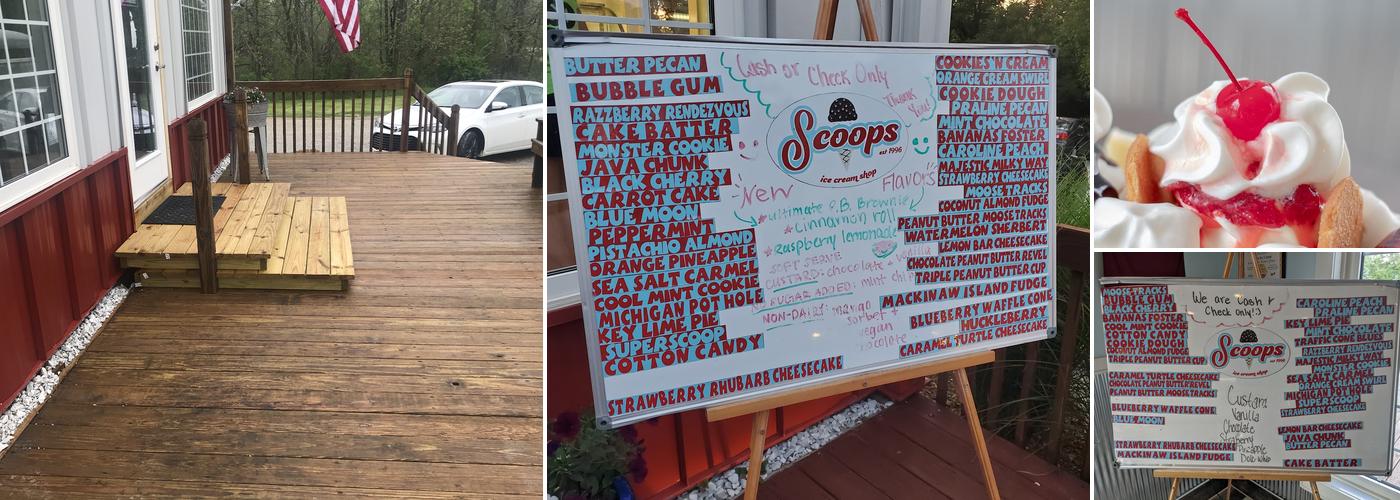 BUTTER PECAN
BUBBLE GUM
RAZZBERRY RENDEZVOUS
CAKE BATTER
MONSTER COOKIE
JAVA CHUNK
BLACK CHERRY
CARROT CAKE
BLUE MOON
PEPPERMINT
PISTACHIO ALMOND
ORANGE PINEAPPLE
SEA SALT CARMEL
COOL MINT COOKIE
MICHIGAN POT HOLE
KEY LIME PIE
SUPERSCOOP
COTTON CANDY
STRAWBERRY RHUBARB CHEESECAKE
Cash or Check Only
Thank You!
Scoops
est 1996
ice cream shop
New Flavors
*ultimate P.B. Brownie
*Cinnamon roll
*Raspberry lemonade
SOFT SERVE
CUSTARD: chocolate + vanilla
SUGAR ADDED: mint chi
NON-DAIRY: mango
sorbet +
vegan
chocolate
COOKIES'N CREAM
ORANGE CREAM SWIRL
COOKIE DOUGH
PRALINE PECAN
MINT CHOCOLATE
BANANAS FOSTER
CAROLINE PEACH
MAJESTIC MILKY WAY
STRAWBERRY CHEESECAKE
MOOSE TRACKS
COCONUT ALMOND FUDGE
PEANUT BUTTER MOOSE TRACKS
WATERMELON SHERBERT
LEMON BAR CHEESECAKE
CHOCOLATE PEANUT BUTTER REVEL
TRIPLE PEANUT BUTTER CUP
MACKINAW ISLAND FUDGE
BLUEBERRY WAFFLE CONE
HUCKLEBERRY
CARAMEL TURTLE CHEESECAKE
MOOSE TRACKS
BUBBLE GUM
BLACK CHERRY
BANANAS FOSTER
COOL MINT COOKIE
COTTON CANDY
COOKIE DOUGH
COCONUT ALMOND FUDGE
TRIPLE PEANUT BUTTER CUP
CARAMEL TURTLE CHEESECAKE
CHOCOLATE PEANUT BUTTER REVEL
PEANUT BUTTER MOOSE TRACKS
BLUEBERRY WAFFLE CONE
BLUE MOON
STRAWBERRY RHUBARB CHEESECAKE
MACKINAW ISLAND FUDGE
We are Cash +
Check only! :)
Scoops
est 1996
ice cream shop
Custard
Vanilla
Chocolate
Straberry
Pineapple
Dole whip
CAROLINE PEACH
PRALINE PECAN
KEY LIME PIE
MINT CHOCOLATE
TRAFFIC CONE BLUES
RAZZBERRY RENDEZVOUS
MAJESTIC MILKY WAY
MONSTER COOKIE
SEA SALT CARAMEL
ORANGE CREAM SWIRL
MICHIGAN POT HOLE
SUPERSCOOP
STRAWBERRY CHEESECAKE
LEMON BAR CHEESECAKE
JAVA CHUNK
BUTTER PECAN
CAKE BATTER